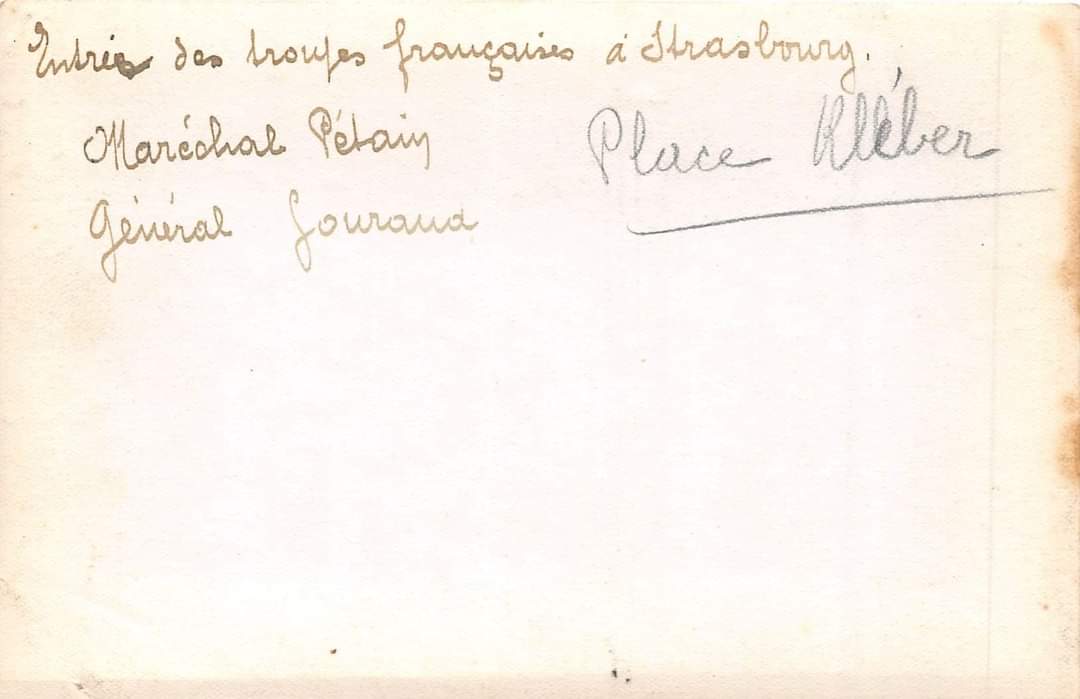 Entrée des troupes françaises à Strasbourg.
Maréchal Pétain
Place Kléber
Général Gouraud